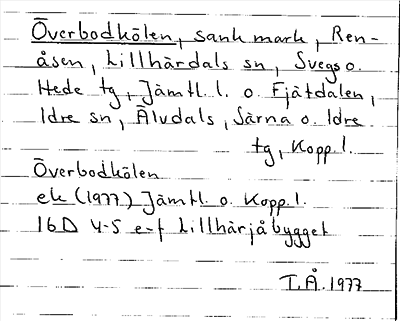 Överbodkölen, sank mark, Ren-
åsen, Lillhärdals sn, Svegs o.
Hede tg, Jämtl. l. o. Fjätdalen,
Idre sn, Älvdals, Särna o. Idre
tg, Kopp l.
Överbodkölen
ek (1977) Jämtl. o. Kopp l.
16D 4-5 e-f Lillhärjåbygget
T.Å. 1977